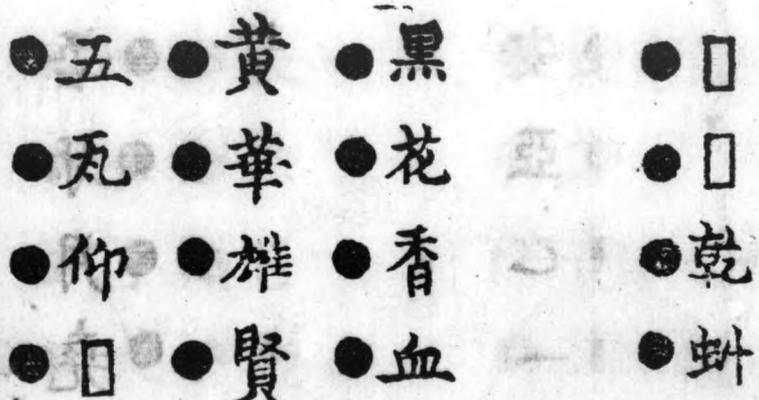 ●□●□●乾●虯
●黑●花●香●血
●黄●華●雄●賢
●五●瓦●仰●□